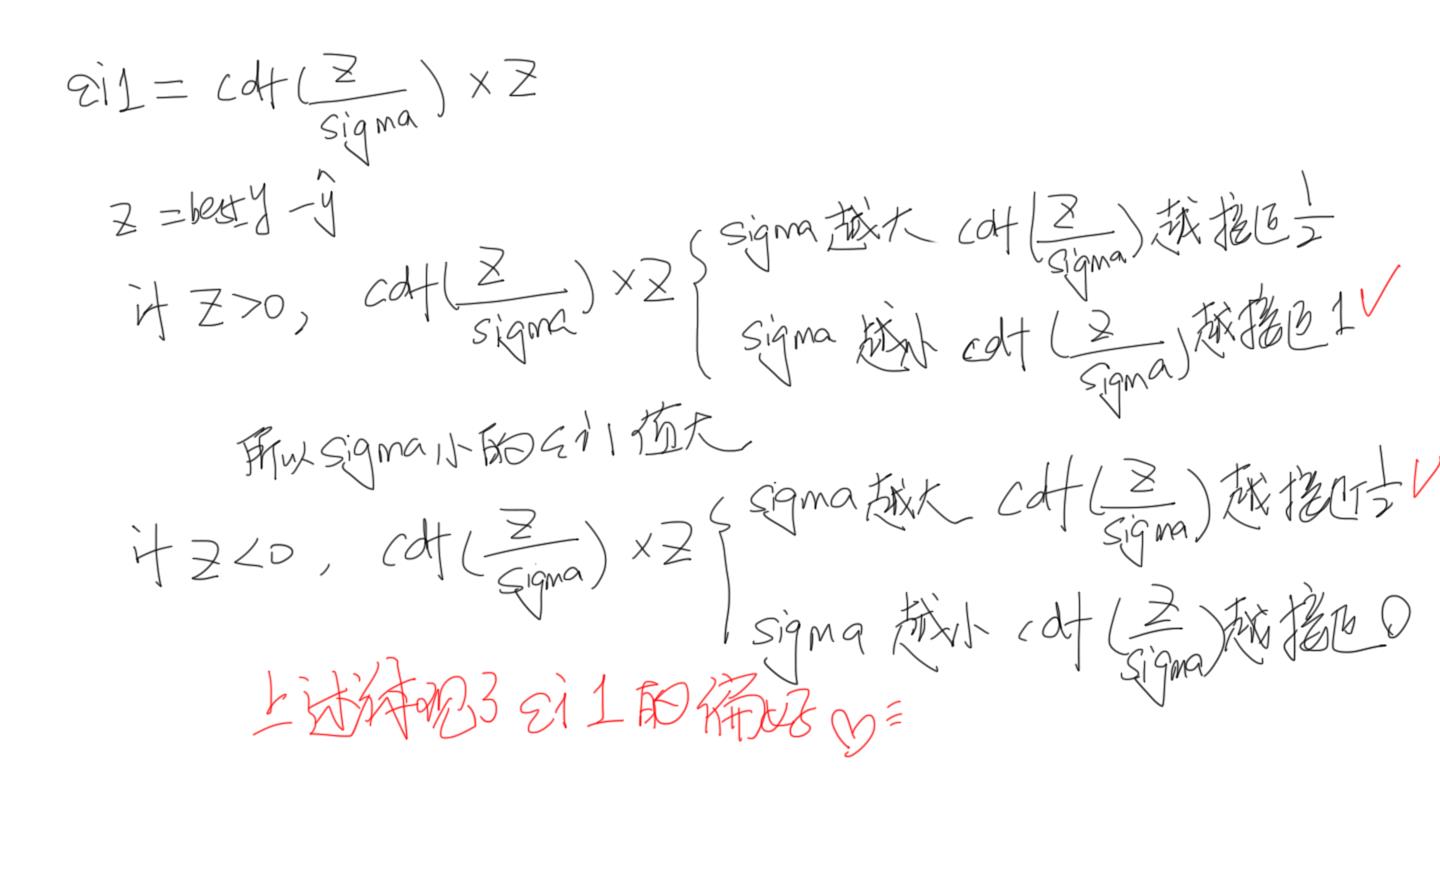 εi1 = cdf(Z/sigma) × Z
Z = besty - ŷ
计 Z>0, cdf(Z/sigma) × Z { sigma 越大 cdf(Z/sigma) 越接近 1/2
sigma 越小 cdf(Z/sigma) 越接近 1 ✓
所以 sigma 小的 εi1 值大
计 Z<0, cdf(Z/sigma) × Z { sigma 越大 cdf(Z/sigma) 越接近 1/2 ✓
sigma 越小 cdf(Z/sigma) 越接近 0
上述体现了 εi1 的偏好 ♡